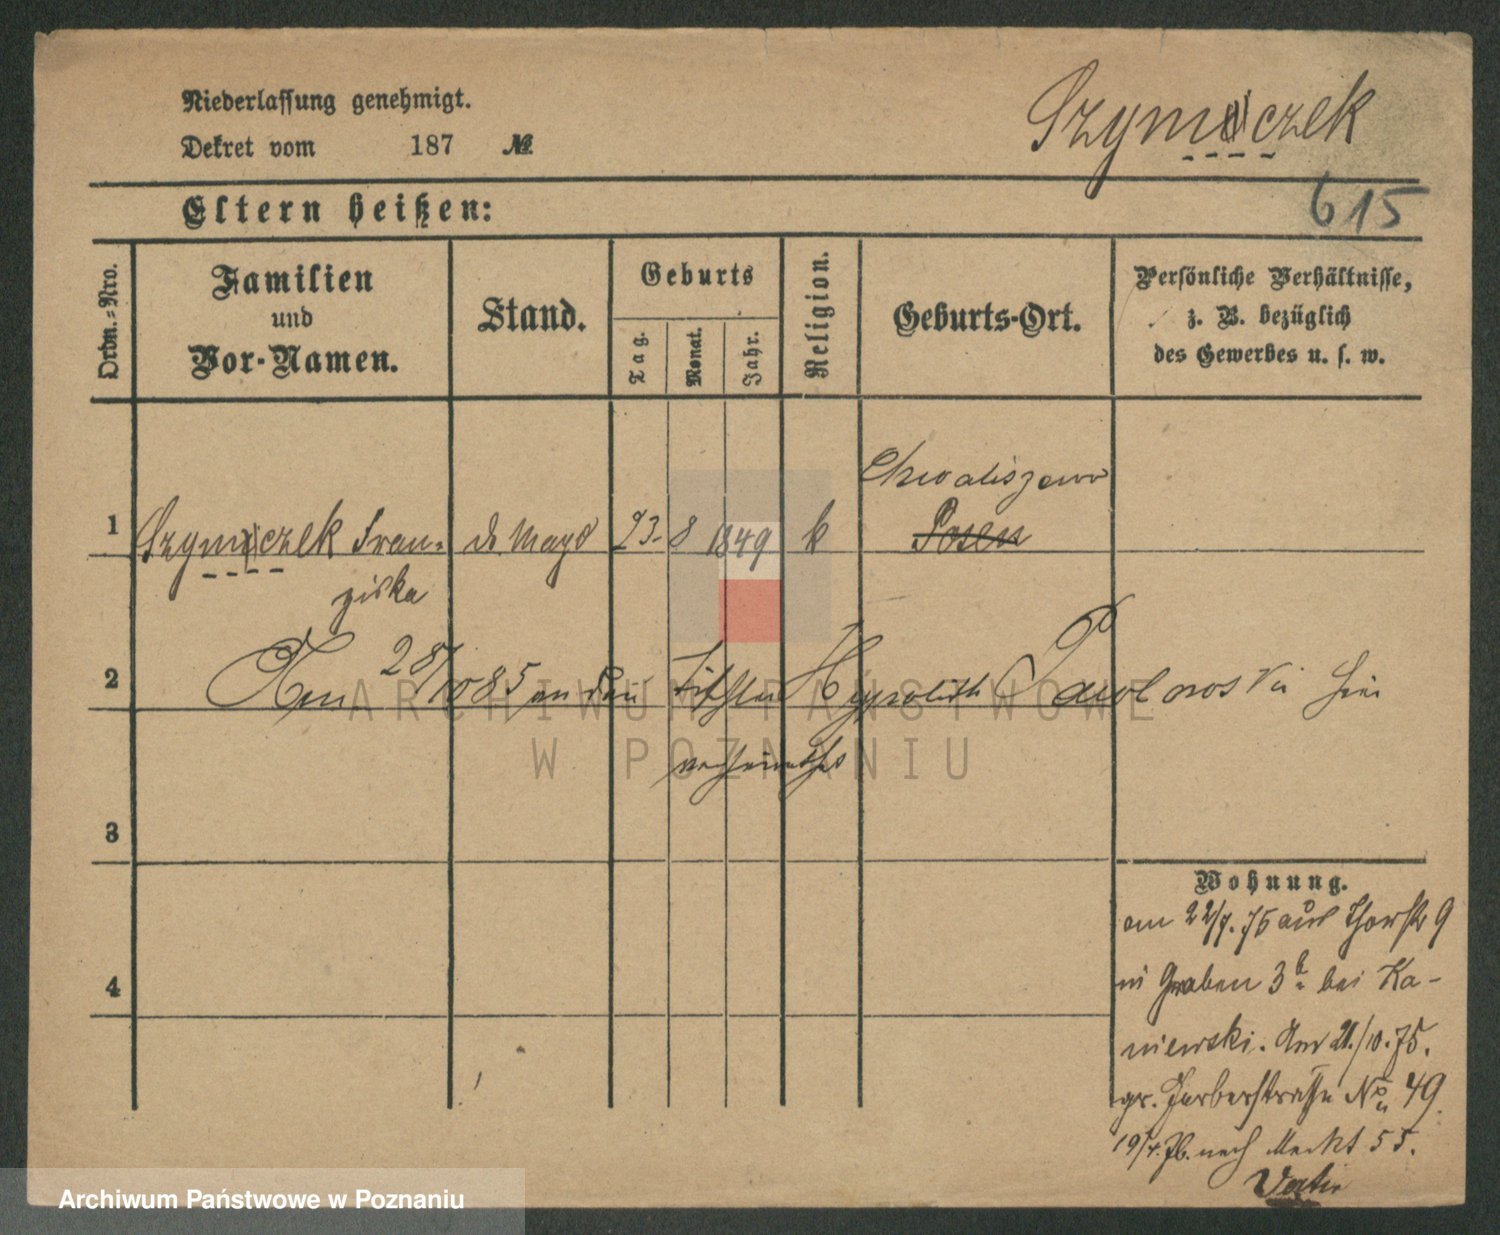 Niederlassung genehmigt.
Dekret vom 187 №
Szymaczek
615
Eltern heißen:
Ordn.-Nro.
Familien
und
Vor-Namen.
Stand.
Geburts
Tag.
Monat.
Jahr.
Religion.
Geburts-Ort.
Persönliche Verhältnisse,
z. B. bezüglich
des Gewerbes u. s. w.
Chwaliszewo
1 Szymaczek Fran- d. Magd 23. 8 1849 k Posen
ziska
2 Am 28/10 85 an den Tischler Hypolith Pawlowski hier
verheirathet
3
Wohnung.
am 22/7. 75 aus Thorstr 9
in Graben 3 b. bei Ka-
niewski. Am 21./10. 75.
4
gr. Gerberstraße No 49.
19/4. 76. nach Markt 55.
ARCHIWUM PAŃSTWOWE
W POZNANIU
Archiwum Państwowe w Poznaniu